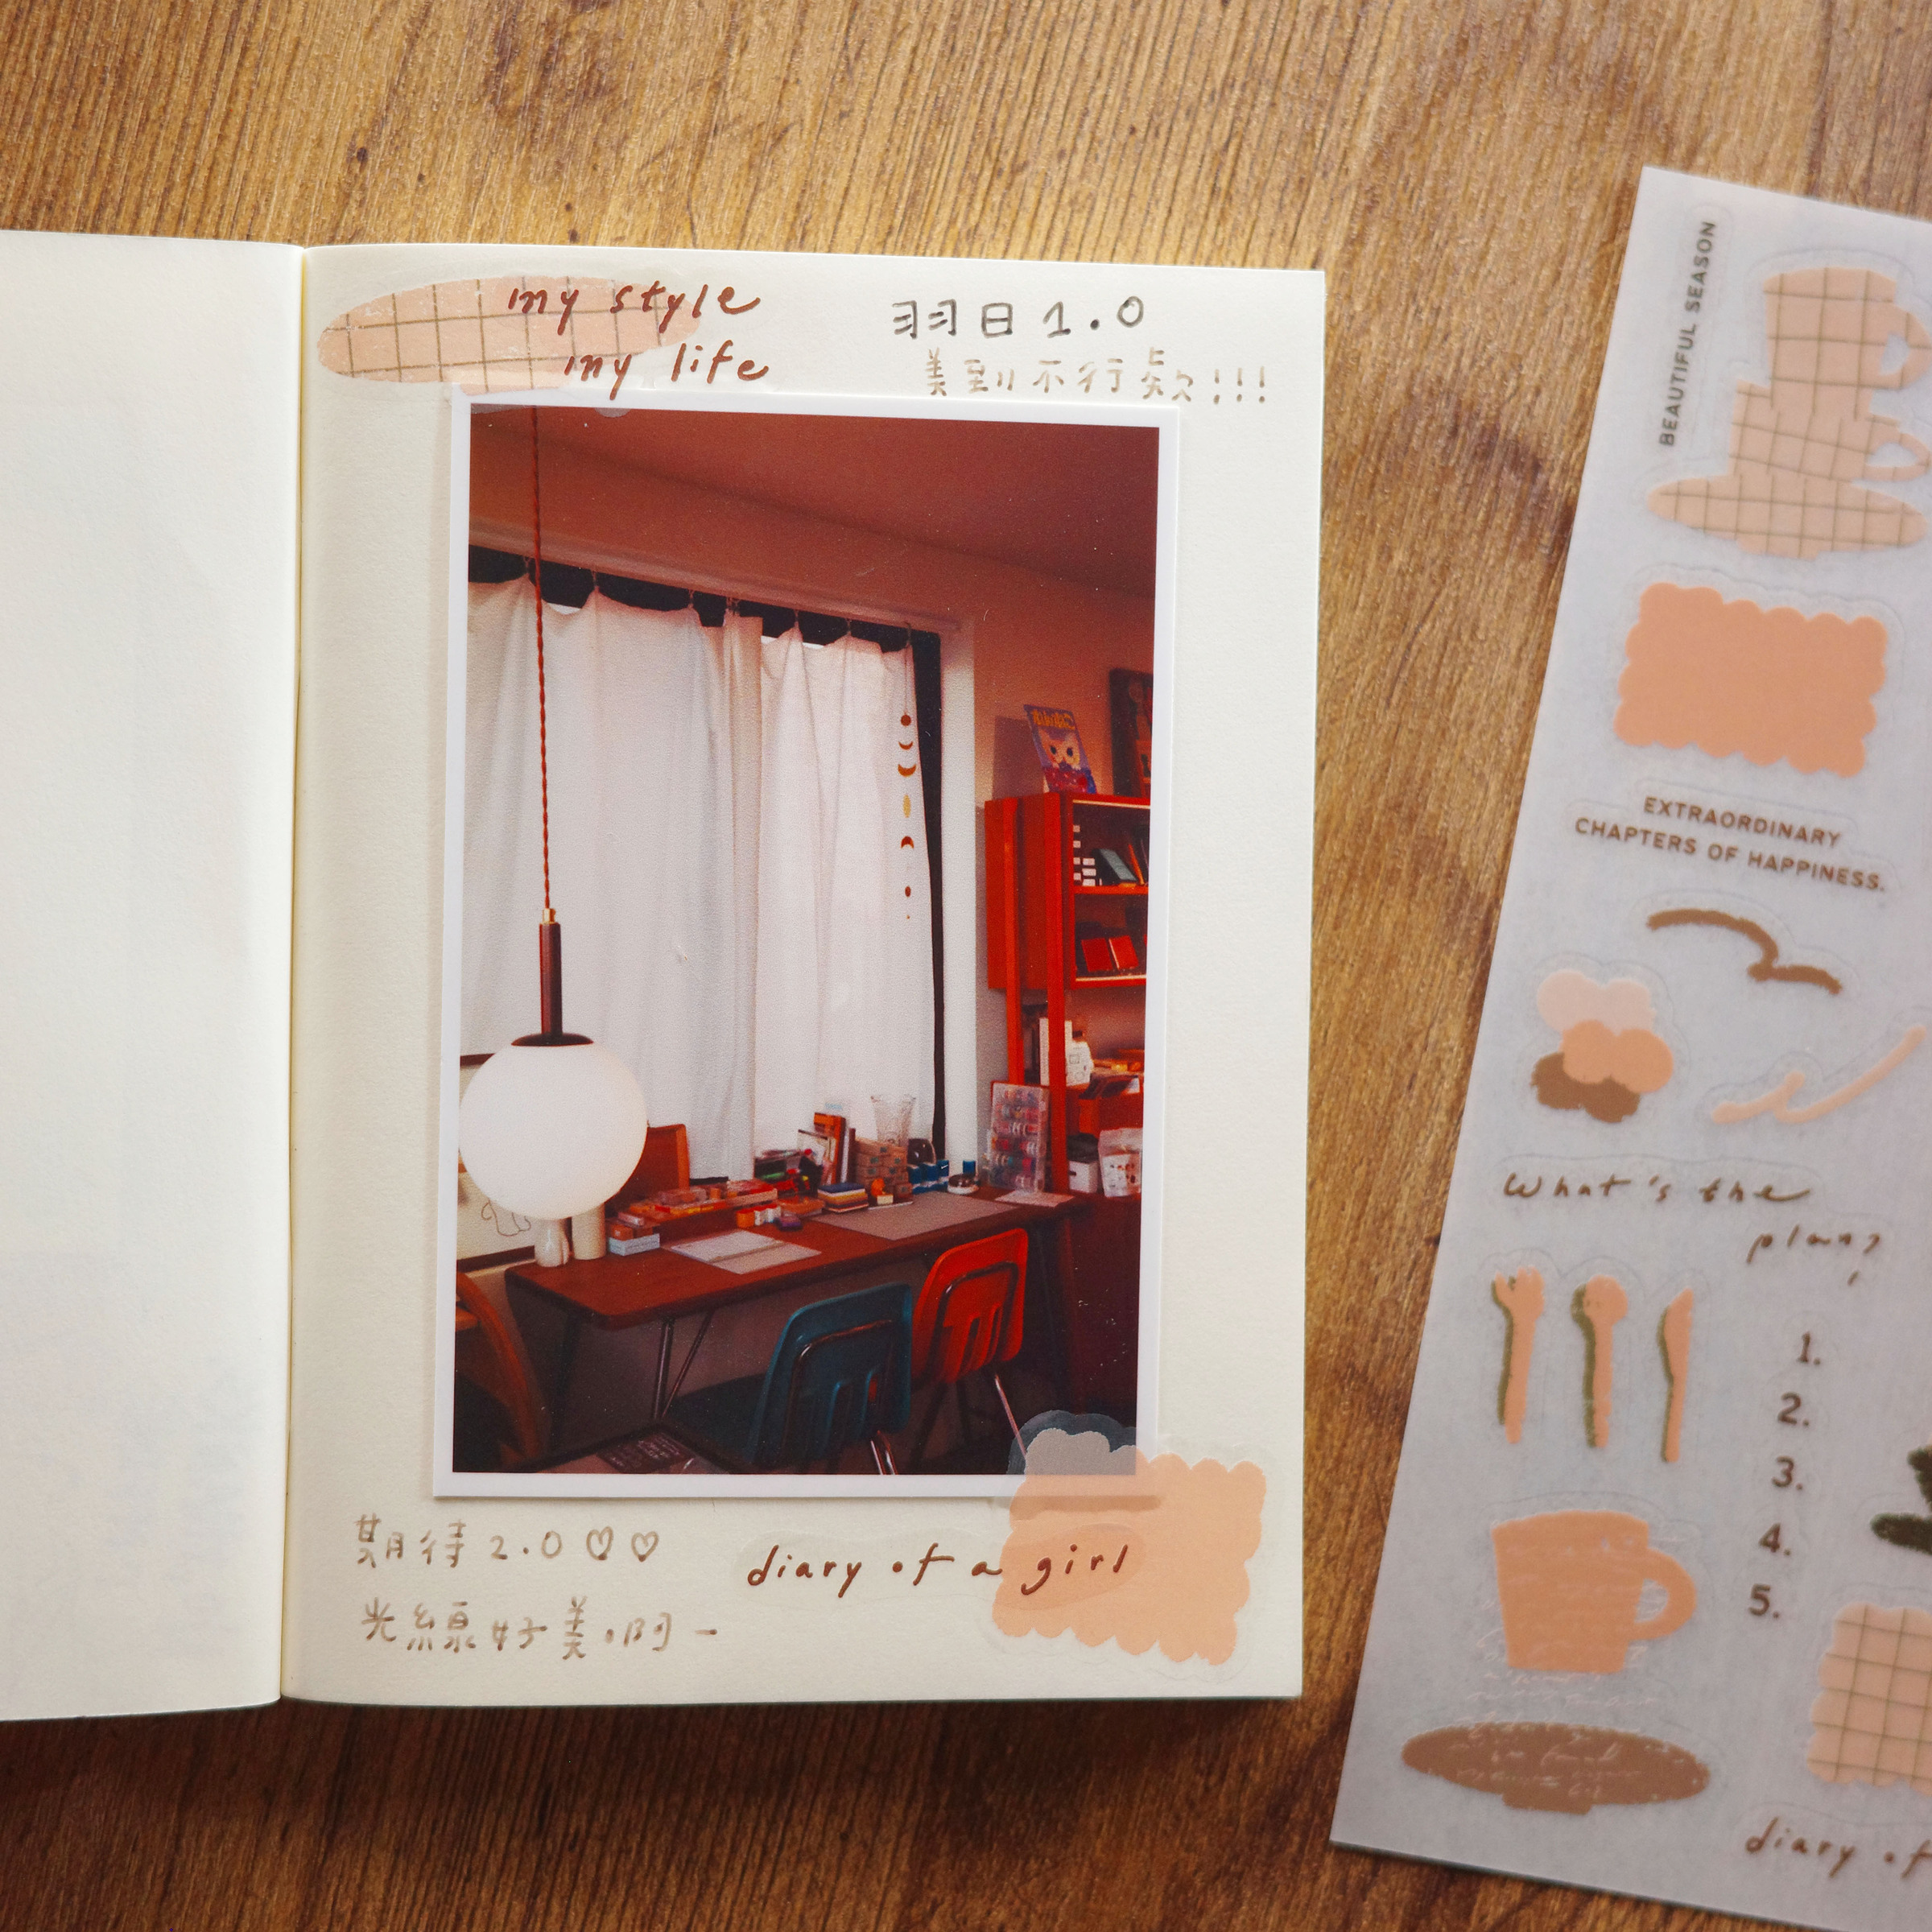 my style
my life
羽日1.0
美到不行欸!!!
期待2.0♡♡
光線好美啊~
diary of a girl
BEAUTIFUL SEASON
EXTRAORDINARY
CHAPTERS OF HAPPINESS.
What's the
plan?
1.
2.
3.
4.
5.
diary of